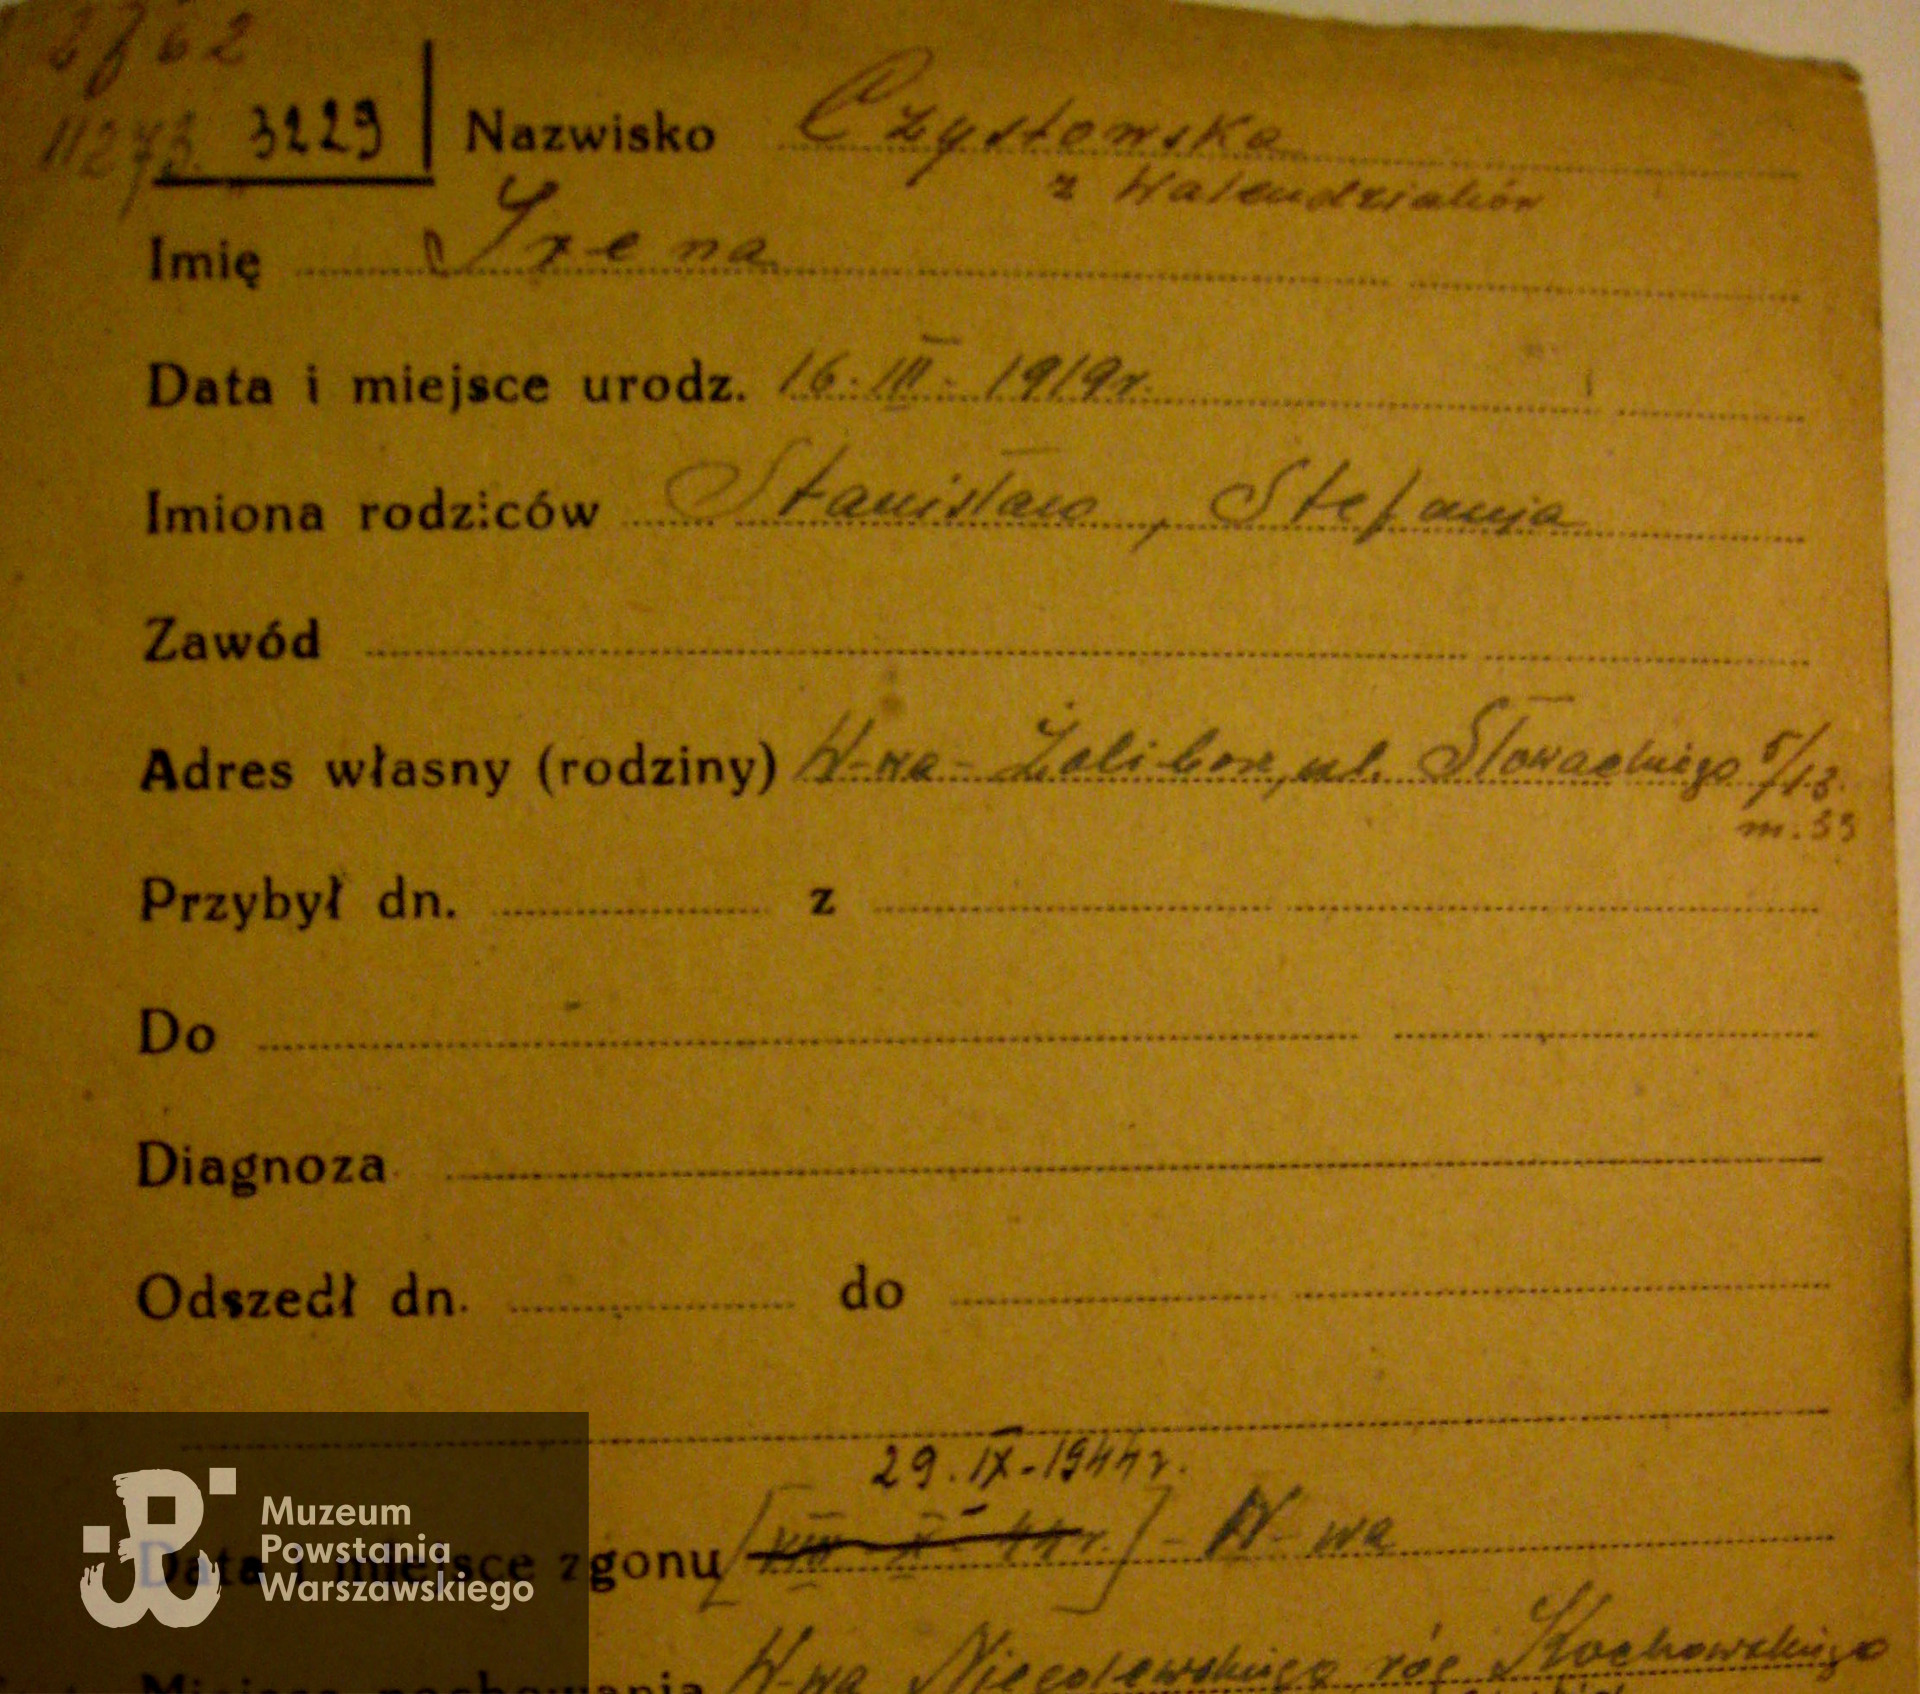 2762
11273. 3229 Nazwisko Czystowska
z Walendziaków
Imię Irena
Data i miejsce urodz. 16.III.1919r.
Imiona rodziców Stanisław, Stefanja
Zawód
Adres własny (rodziny) W-wa-Żolibor, ul. Słowackiego 5/13.
m. 33
Przybył dn. z
Do
Diagnoza
Odszedł dn. do
29.IX-1944r.
Data i miejsce zgonu [VIII-X-44r.] - W-wa
Miejsce pochowania W-wa Niegolewskiego róg Kochowskiego
Muzeum
Powstania
Warszawskiego